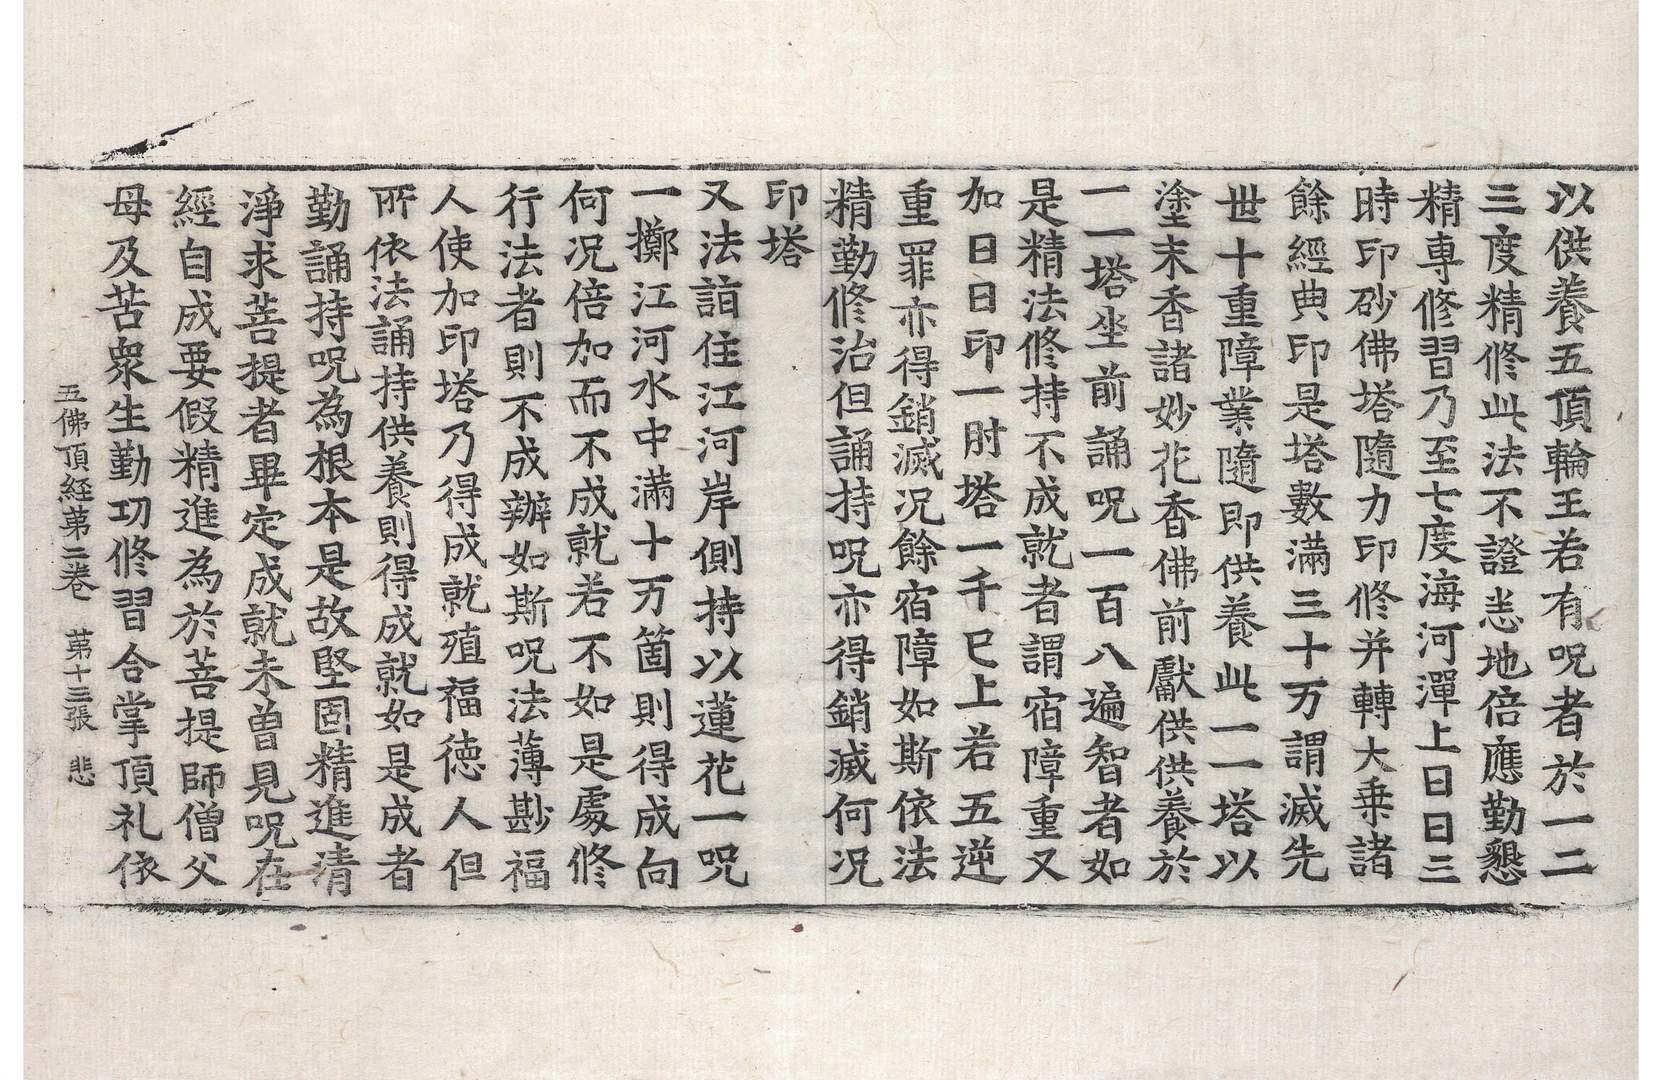 以供養五頂輪王若有呪者於一二
三度精修此法不證悉地倍應勤懇
精專修習乃至七度海河潬上日日三
時印砂佛塔隨力印修并轉大乗諸
餘經典印是塔數滿三十万謂滅先
世十重障業隨即供養此一一塔以
塗末香諸妙花香佛前獻供供養於
一一塔坐前誦呪一百八遍智者如
是精法修持不成就者謂宿障重又
加日日印一肘塔一千已上若五逆
重罪亦得銷滅况餘宿障如斯依法
精勤修治但誦持呪亦得銷滅何况
印塔
又法詣住江河岸側持以蓮花一呪
一擲江河水中滿十万箇則得成向
何况倍加而不成就若不如是處修
行法者則不成辦如斯呪法薄尠福
人使加印塔乃得成就殖福德人但
所依法誦持供養則得成就如是成者
勤誦持呪為根本是故堅固精進清
淨求菩提者畢定成就未曾見呪在
經自成要假精進為於菩提師僧父
母及苦衆生勤功修習合掌頂礼依
五佛頂經第二卷　第十三張　悲